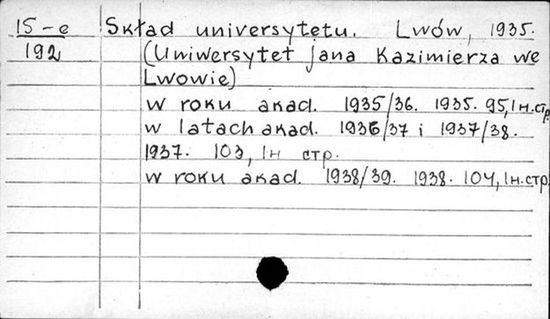 15-е Skład universytetu. Lwów, 1935.
192 (Uniwersytet jana Kazimierza we
Lwowie)
w roku akad. 1935/36. 1935. 95, 1н.стр
w latach akad. 1936/37 i 1937/38.
1937. 103, 1н стр.
w roku akad. 1938/39. 1938. 104, 1н.стр